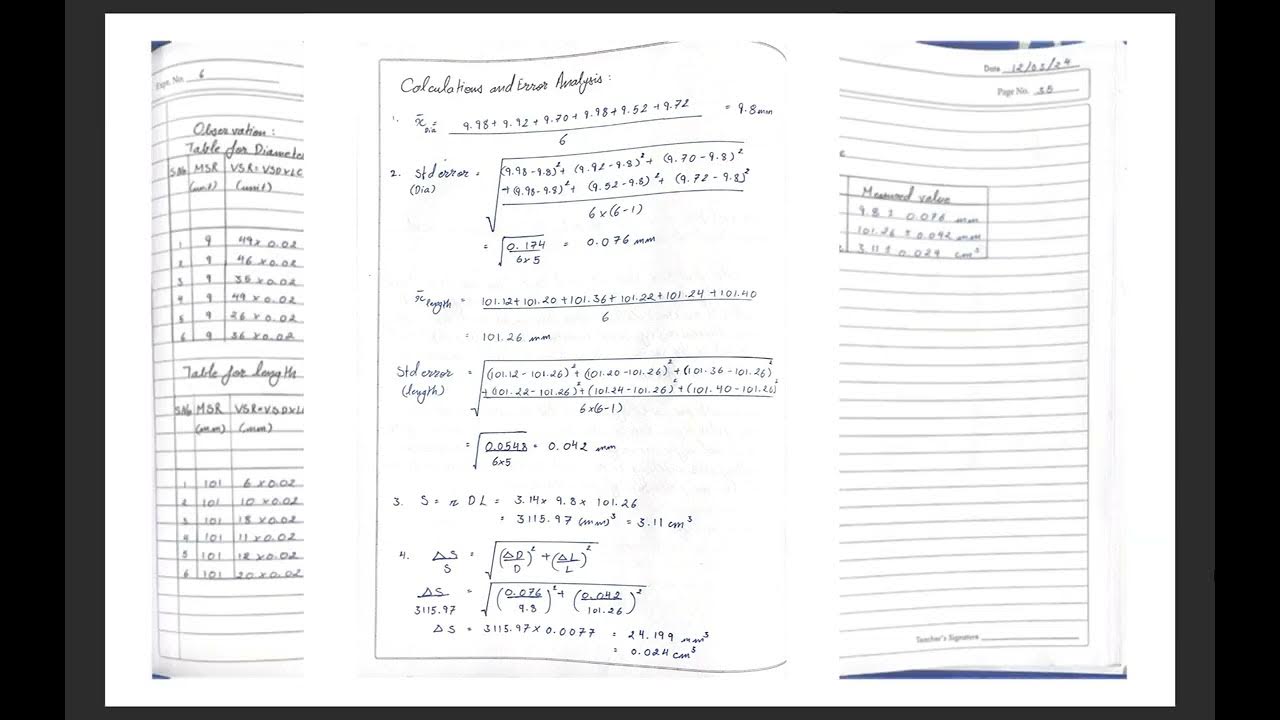 Expt. No. 6
Observation:
Table for Diamete
S.No MSR VSR=VSD×LC
(unit) (unit)
1 9 49×0.02
2 9 46×0.02
3 9 35×0.02
4 9 49×0.02
5 9 26×0.02
6 9 36×0.02
Table for length
S.No MSR VSR=VSD×L
(mm) (mm)
1 101 6×0.02
2 101 10×0.02
3 101 18×0.02
4 101 11×0.02
5 101 12×0.02
6 101 20×0.02
Calculations and Error Analysis:
1. x̄ Dia = 9.98+9.92+9.70+9.98+9.52+9.72 = 9.8 mm
6
2. Std error = √ (9.98-9.8)²+ (9.92-9.8)²+ (9.70-9.8)²
(Dia) +(9.98-9.8)²+ (9.52-9.8)²+ (9.72-9.8)²
6×(6-1)
= √ 0.174 = 0.076 mm
6×5
x̄ length = 101.12+101.20+101.36+101.22+101.24+101.40
6
= 101.26 mm
Std error = √ (101.12-101.26)²+(101.20-101.26)²+(101.36-101.26)²
(length) +(101.22-101.26)²+(101.24-101.26)²+(101.40-101.26)²
6×(6-1)
= √ 0.0548 = 0.042 mm
6×5
3. S = π DL = 3.14× 9.8× 101.26
= 3115.97 (mm)³ = 3.11 cm³
4. ΔS = √ (ΔD)² + (ΔL)²
S D L
ΔS = √ (0.076)² + (0.042)²
3115.97 9.8 101.26
ΔS = 3115.97×0.0077 = 24.199 mm³
= 0.024 cm³
Date 12/03/24
Page No. 35
Measured value
9.8 ± 0.076 mm
101.26 ± 0.042 mm
3.11 ± 0.024 cm³
Teacher's Signature